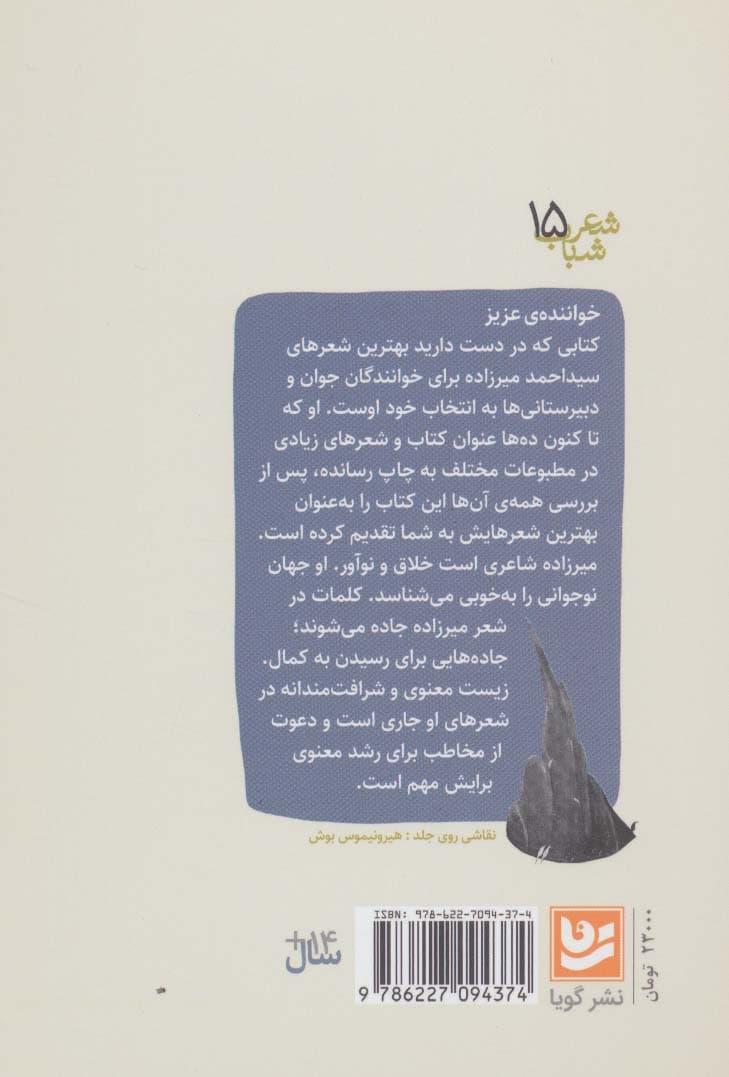 شعر ۱۵
شباب
خواننده‌ی عزیز
کتابی که در دست دارید بهترین شعرهای
سیداحمد میرزاده برای خوانندگان جوان و
دبیرستانی‌ها به انتخاب خود اوست. او که
تا کنون ده‌ها عنوان کتاب و شعرهای زیادی
در مطبوعات مختلف به چاپ رسانده، پس از
بررسی همه‌ی آن‌ها این کتاب را به‌عنوان
بهترین شعرهایش به شما تقدیم کرده است.
میرزاده شاعری است خلاق و نوآور. او جهان
نوجوانی را به‌خوبی می‌شناسد. کلمات در
شعر میرزاده جاده می‌شوند؛
جاده‌هایی برای رسیدن به کمال.
زیست معنوی و شرافت‌مندانه در
شعرهای او جاری است و دعوت
از مخاطب برای رشد معنوی
برایش مهم است.
نقاشی روی جلد : هیرونیموس بوش
+۱۴
سال
ISBN: 978-622-7094-37-4
9 786227 094374
نشر گویا
۲۳۰۰۰ تومان